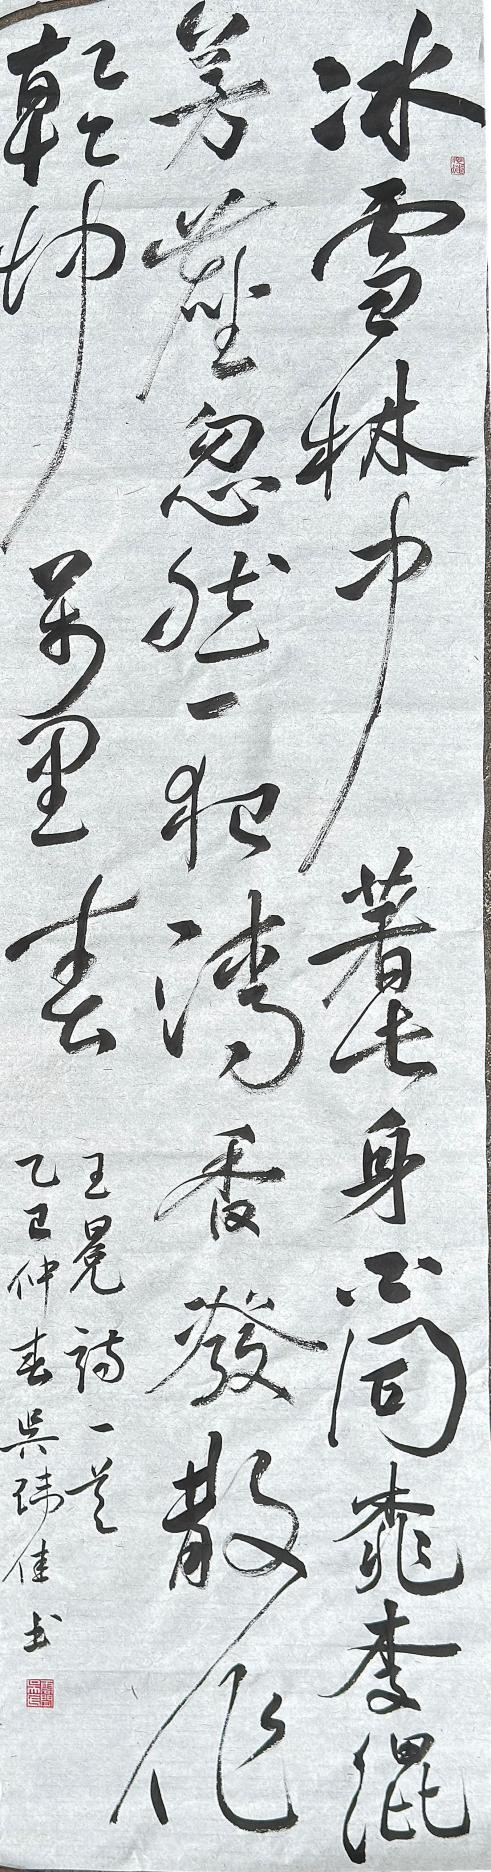 冰雪林中著此身不同桃李混
芳塵忽然一夜清香發散作
乾坤萬里春
王冕詩一首
乙巳仲春吳瑋佳書